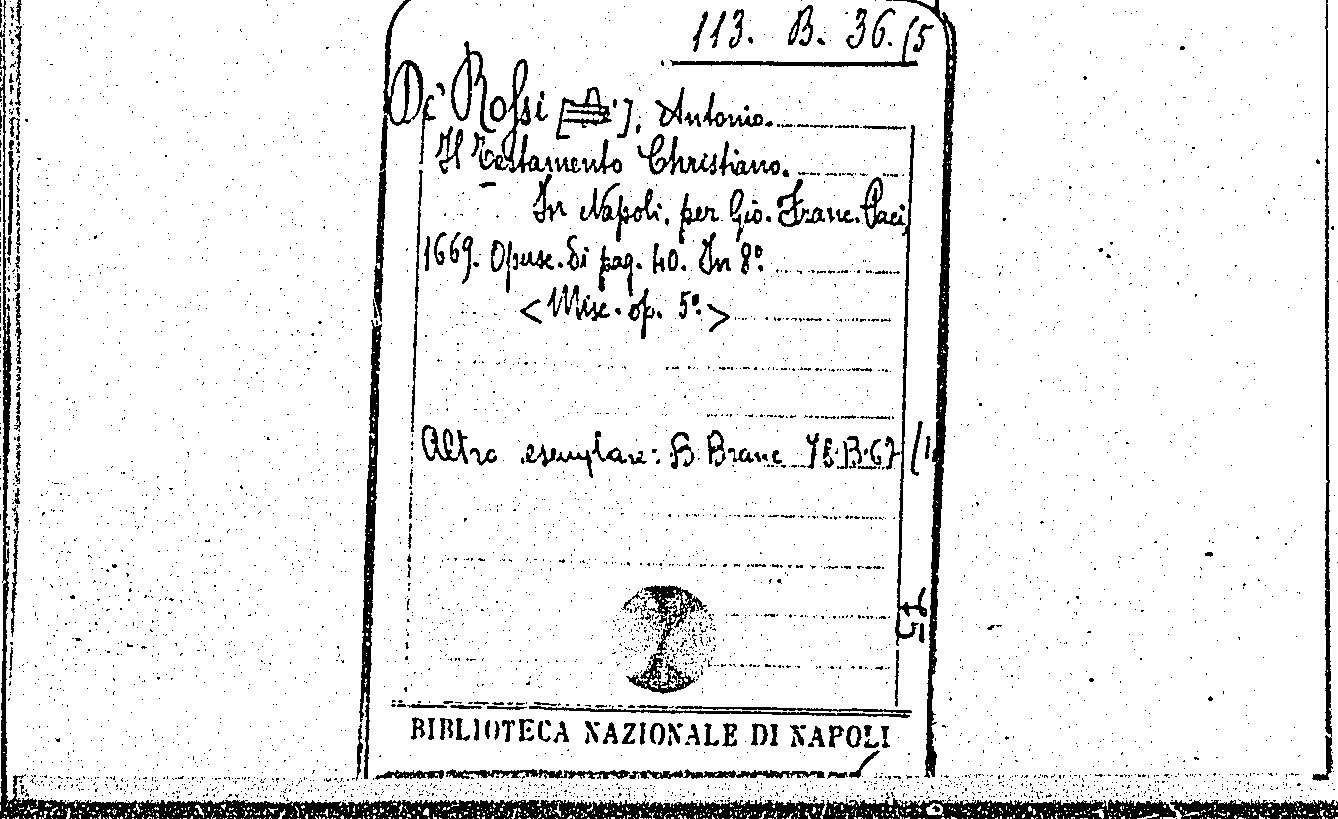 113. B. 36. (5
De' Rossi [ ], Antonio.
Il Testamento Christiano.
In Napoli, per Gio. Franc. Paci,
1669. Opusc. di pag. 40. In 8º.
<Misc. op. 5º.>
Altro esemplare: B. Branc 75.B.67 (1.
BIBLIOTECA NAZIONALE DI NAPOLI